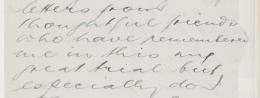 letters from
thoughtful friends
who have remembered
me in this my
great trial but
especially do I